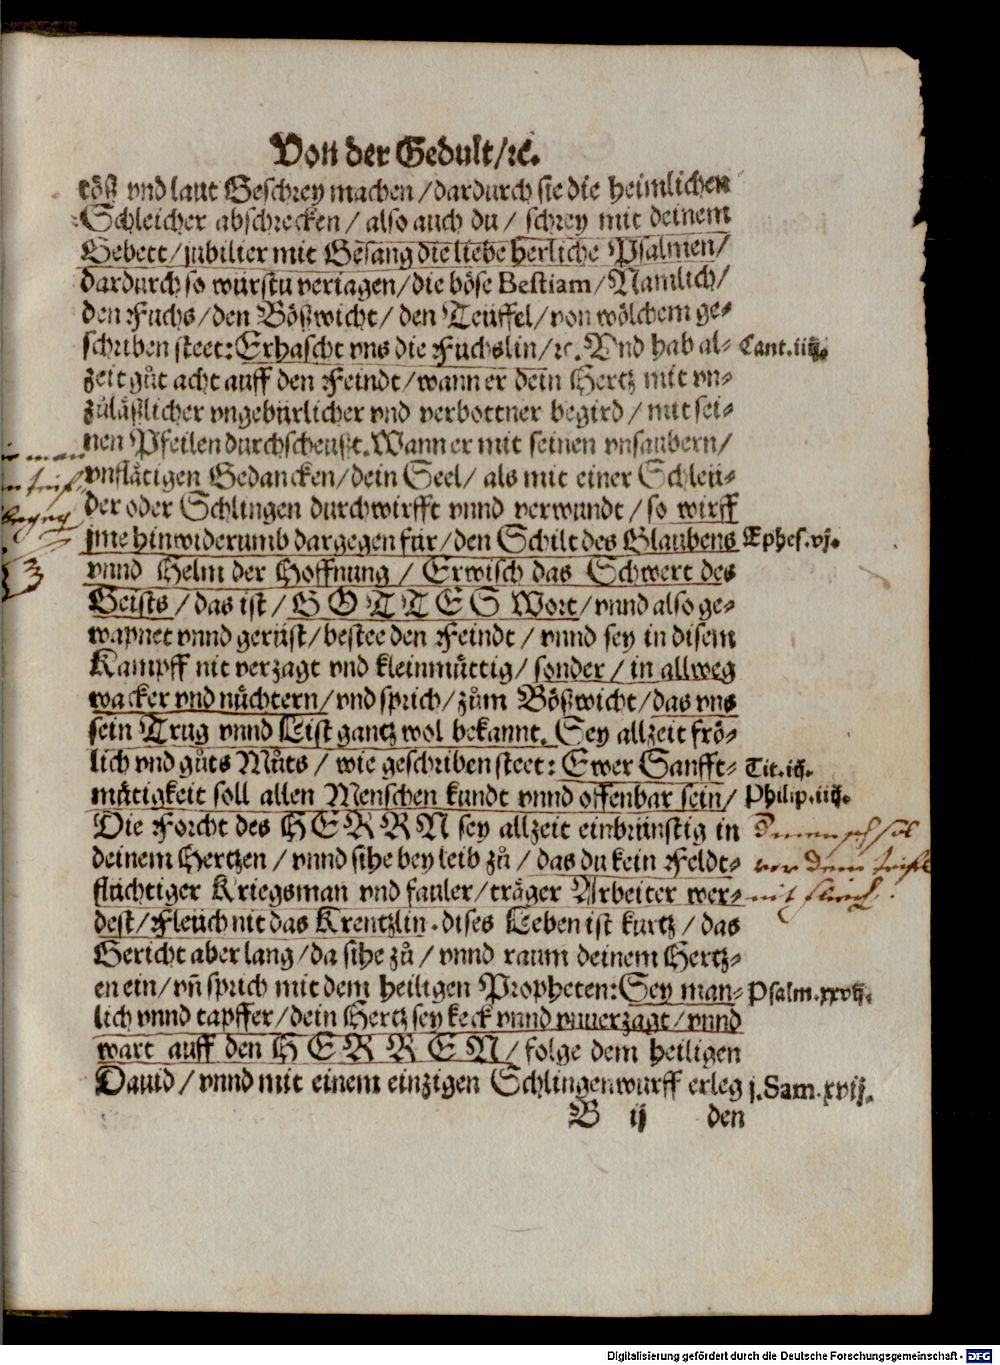 Von der Gedult/ꝛc.
töß vnd laut Geschrey machen/dardurch sie die heimlichen
Schleicher abschrecken/ also auch du/ schrey mit deinem
Gebett/jubilier mit Gesang die liebe herliche Psalmen/
dardurch so würstu verjagen/die böse Bestiam/Namlich/
den Fuchs/den Bößwicht/ den Teüffel/von wölchem ge⸗
schriben steet: Erhascht vns die Füchslin/ꝛc. Vnd hab al⸗ Cant.iiij.
zeit gůt acht auff den Feindt/wann er dein Hertz mit vn⸗
zůläßlicher vngebürlicher vnd verbottner begird/ mit sei⸗
nen Pfeilen durchscheußt. Wann er mit seinen vnsaubern/
vnflätigen Gedancken/dein Seel/ als mit einer Schleü⸗
der oder Schlingen durchwirfft vnnd verwundt/ so wirff
jme hinwiderumb dargegen für/den Schilt des Glaubens Ephes.vj.
vnnd Helm der Hoffnung/ Erwisch das Schwert des
Geists/das ist/ GOTTES Wort/vnnd also ge⸗
wapnet vnnd gerüst/bestee den Feindt/ vnnd sey in disem
Kampff nit verzagt vnd kleinmüttig/ sonder/ in allweg
wacker vnd nüchtern/vnd sprich/zům Bößwicht/das vns
sein Trug vnnd List gantz wol bekannt. Sey allzeit frö⸗
lich vnd gůts Můts/ wie geschriben steet: Ewer Sanfft⸗ Tit.iij.
mütigkeit soll allen Menschen kundt vnnd offenbar sein/ Philip.iiij.
Die Forcht des HERRN sey allzeit einbrünstig in
deinem Hertzen/ vnnd sihe bey leib zů/ das du kein Feldt⸗
flüchtiger Kriegsman vnd fauler/träger Arbeiter wer⸗
dest/Fleüch nit das Krentzlin. dises Leben ist kurtz/ das
Gericht aber lang/da sihe zů/ vnnd raum deinem Hertz⸗
en ein/vñ sprich mit dem heiligen Propheten: Sey man⸗ Psalm.xxvij.
lich vnnd tapffer/dein Hertz sey keck vnnd vnuerzagt/vnnd
wart auff den HERREN/ folge dem heiligen
Dauid/ vnnd mit einem einzigen Schlingenwurff erleg j.Sam.xvij.
B ij den
man
vor dem
nit
Digitalisierung gefördert durch die Deutsche Forschungsgemeinschaft - DFG